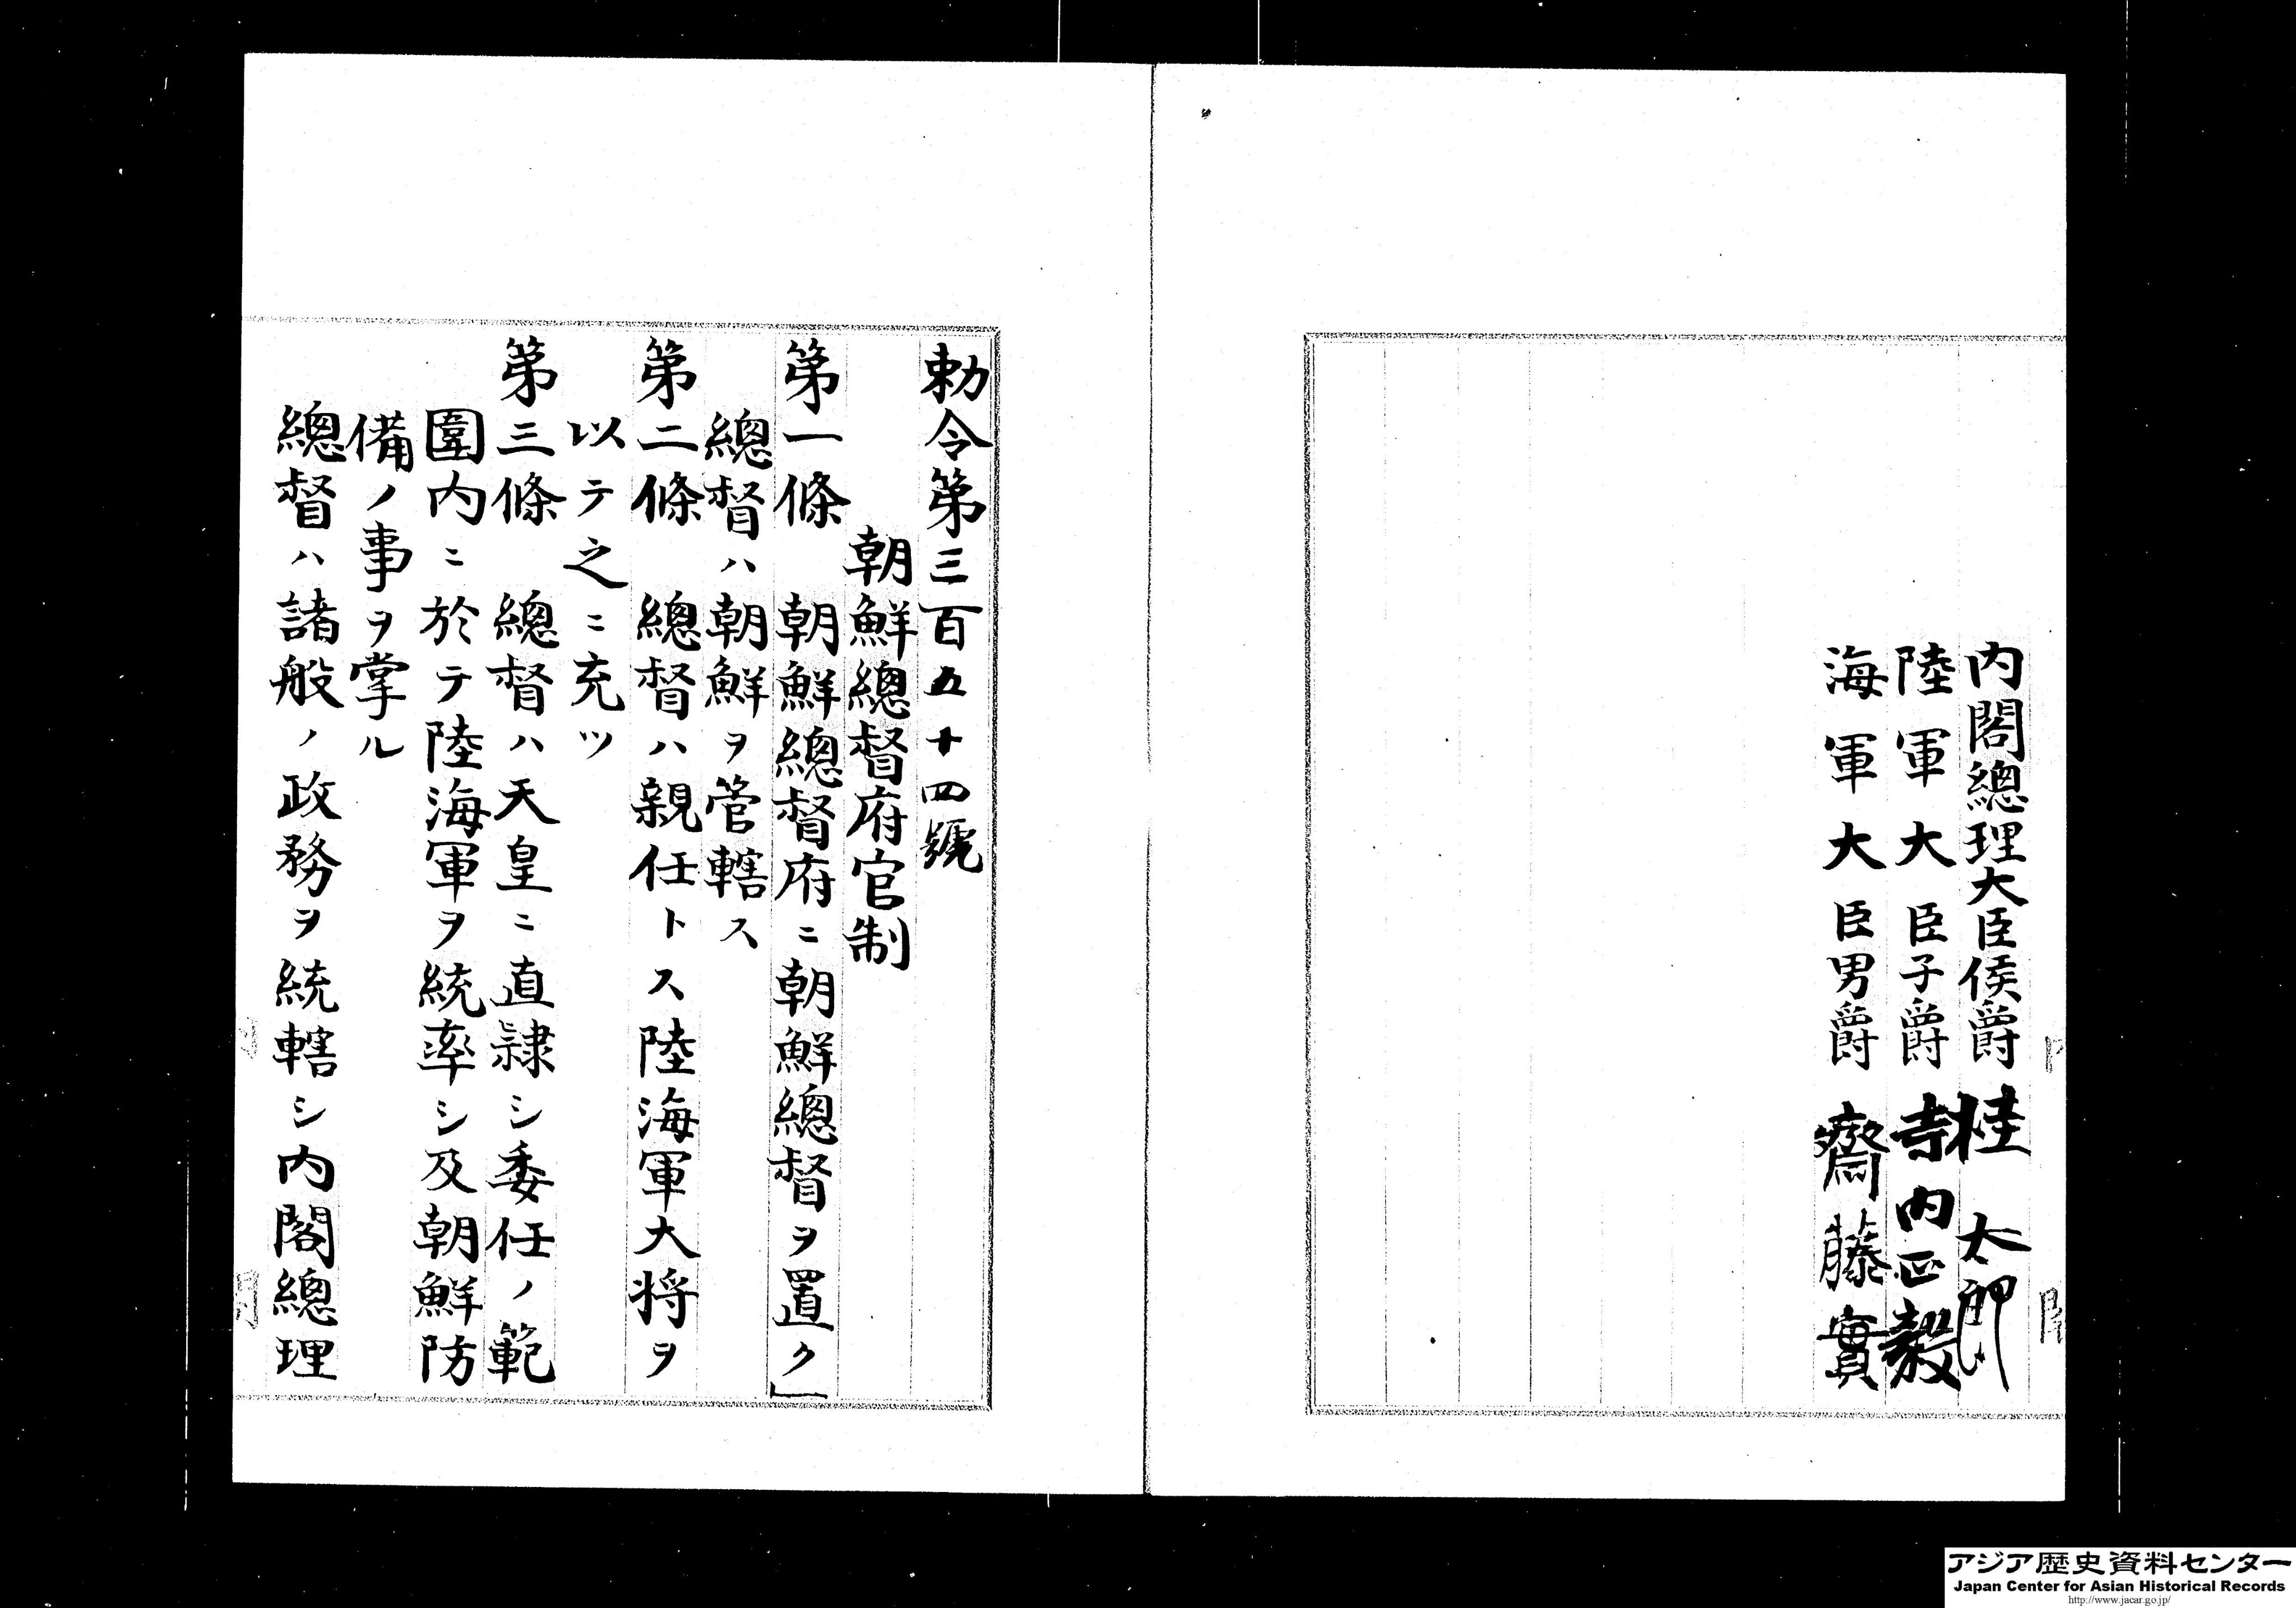 内閣總理大臣侯爵桂太郎
陸軍大臣子爵寺内正毅
海軍大臣男爵齋藤實
勅令第三百五十四號
朝鮮總督府官制
第一條 朝鮮總督府ニ朝鮮總督ヲ置ク」
總督ハ朝鮮ヲ管轄ス
第二條 總督ハ親任トス陸海軍大将ヲ
以テ之ニ充ツ
第三條 總督ハ天皇ニ直隷シ委任ノ範
圍内ニ於テ陸海軍ヲ統率シ及朝鮮防
備ノ事ヲ掌ル
總督ハ諸般ノ政務ヲ統轄シ内閣總理
アジア歴史資料センター
Japan Center for Asian Historical Records
http://www.jacar.go.jp/